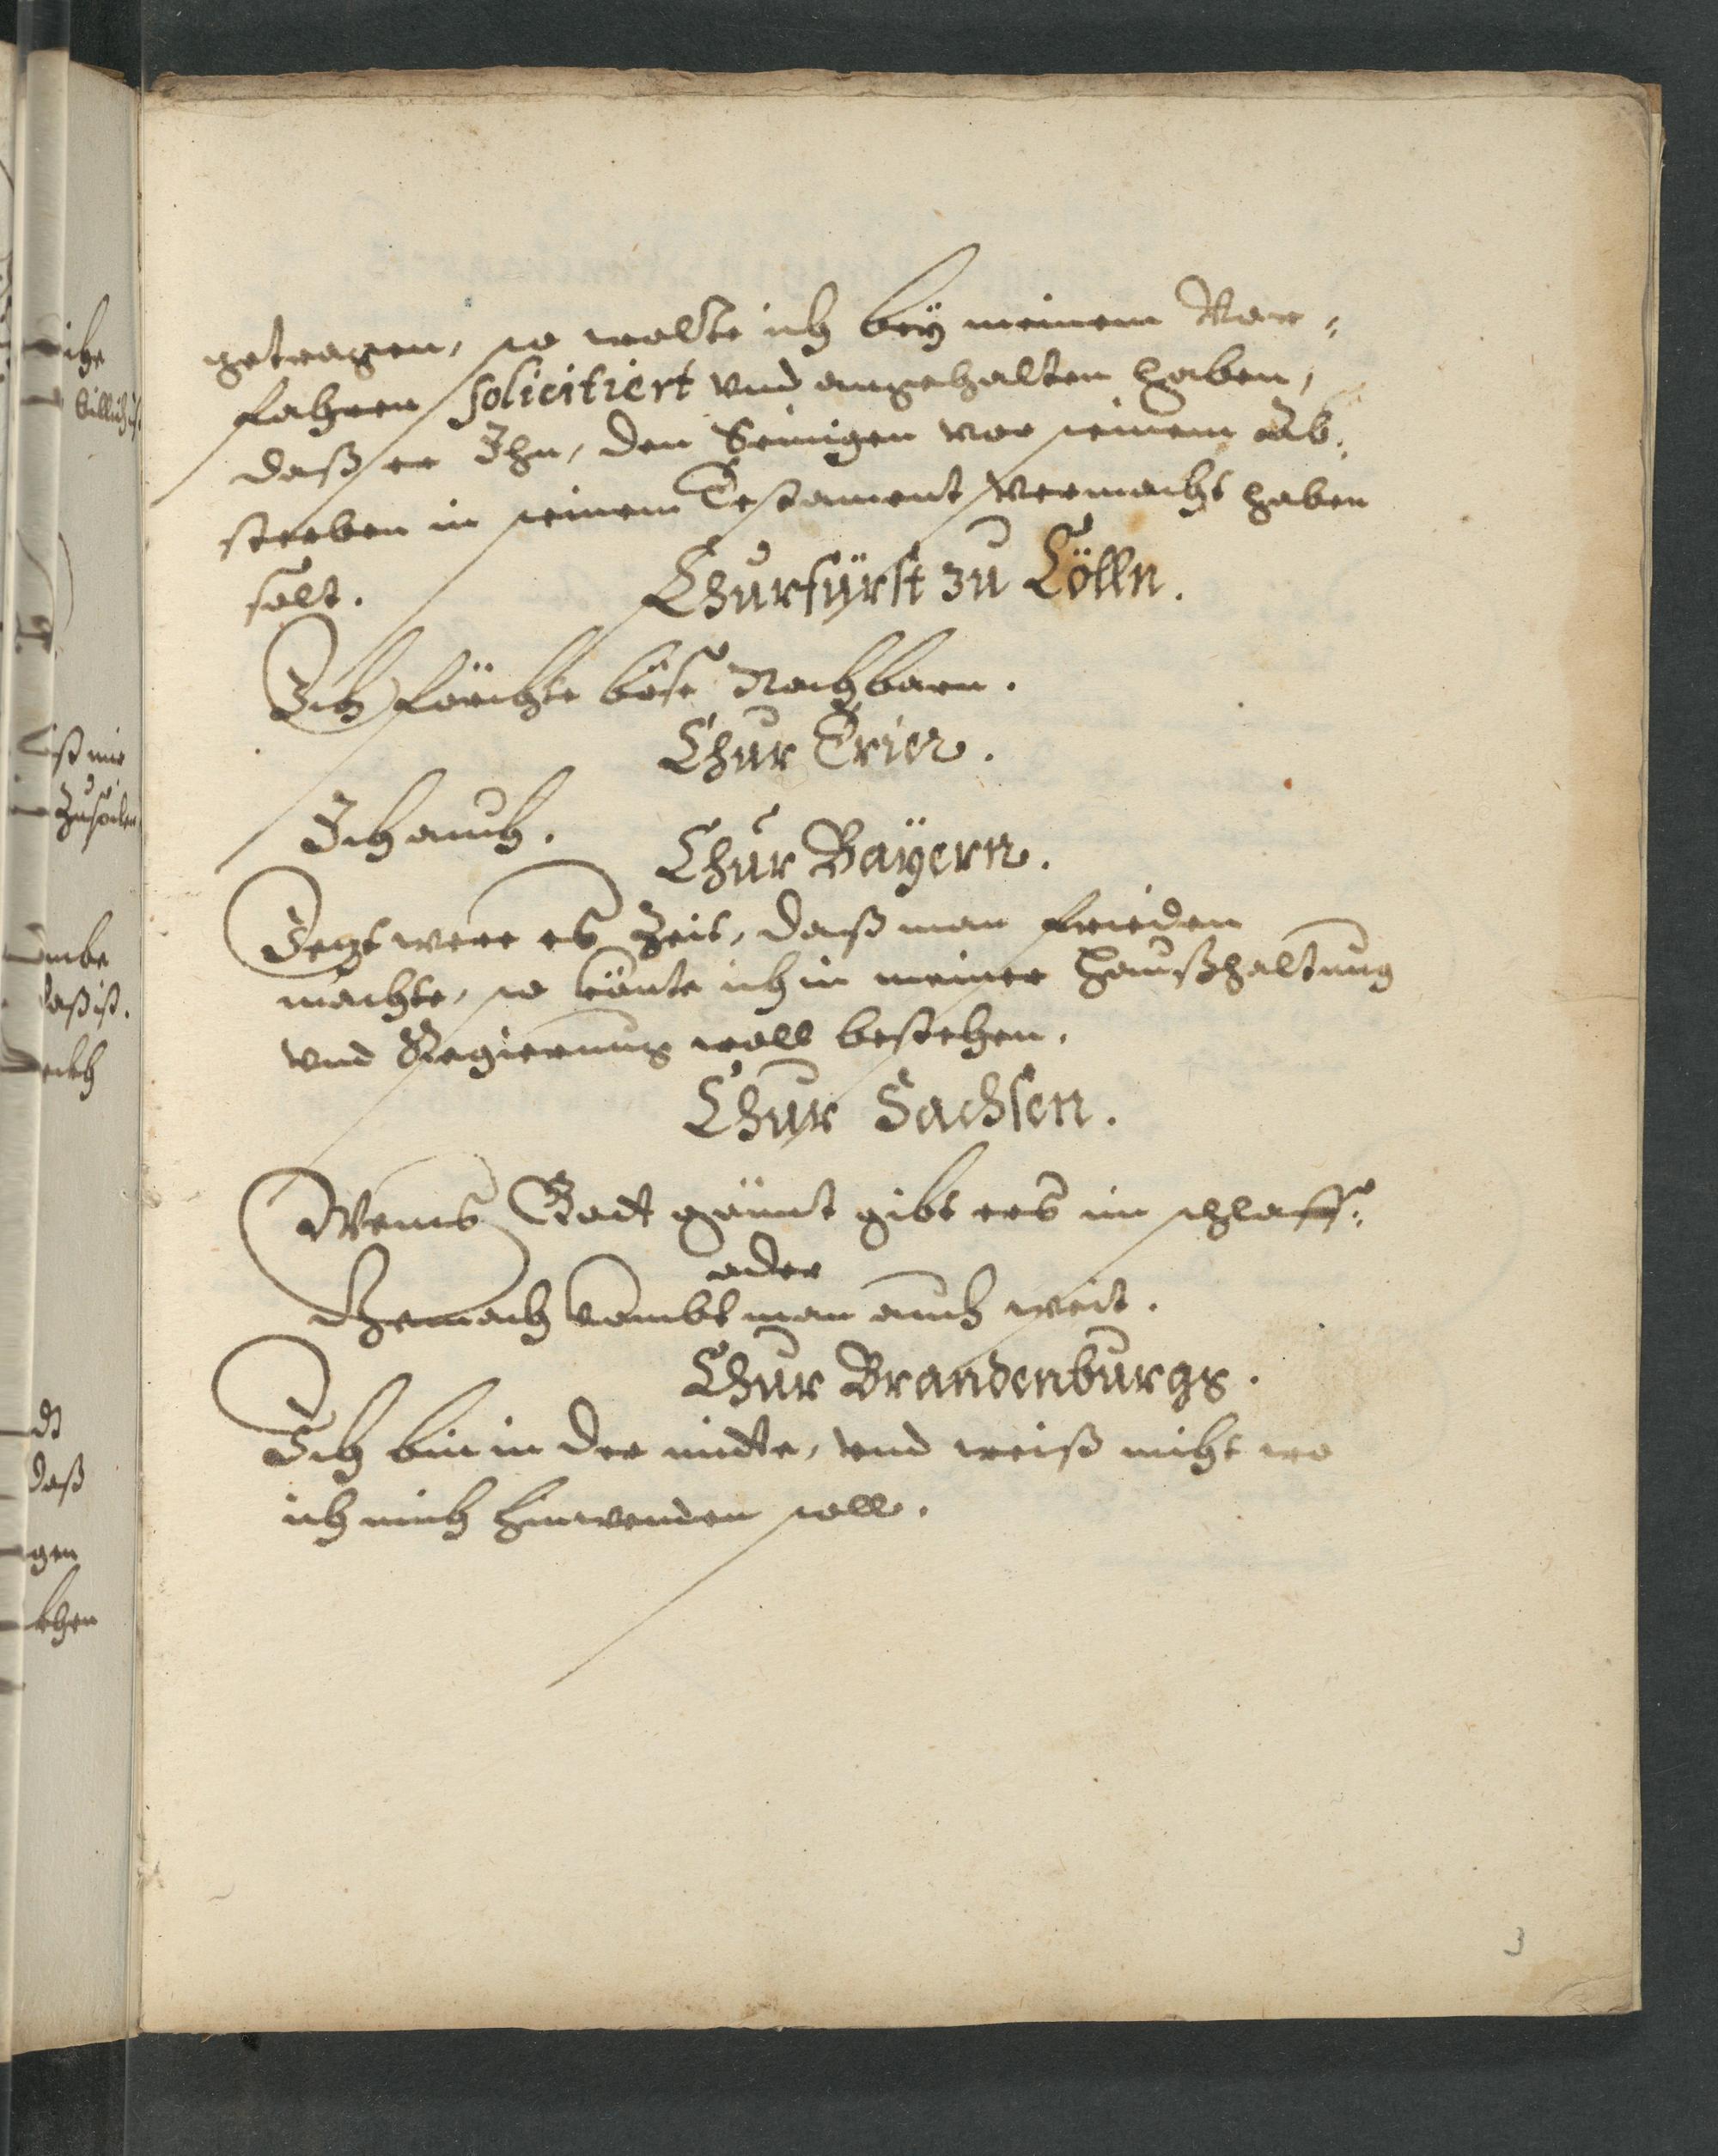 getragen, so wolte ich beÿ meinem Vor-
fahren solicitiert vnd angehalten haben,
daß er Ihn, den Seinigen vor seinem Ab-
sterben in seinem Testament vermacht haben
solt.
Churfürst zu Cölln.
Ich förchte böse Nachbarn.
Chur Trier.
Ich auch.
Chur Baÿern.
Jetzt were es Zeit, daß man frieden
machte, so könte ich in meiner Haußhaltung
vnd Regierung woll bestehen.
Chur Sachsen.
Wems Gott gönnt gibt ers im schlaff.
oder
Gemach kombt man auch weit.
Chur Brandenburgs.
Ich bin in der mitte, vnd weiß nicht wo
ich mich hinwenden soll.
3